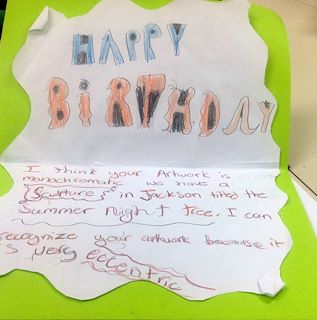 HAPPY
BiRTHDAY
I think your Artwork is
monochromatic we have a
Sculpture in Jackson titled the
Summer Night Tree. I can
recognize your artwork because it
is very eccentric